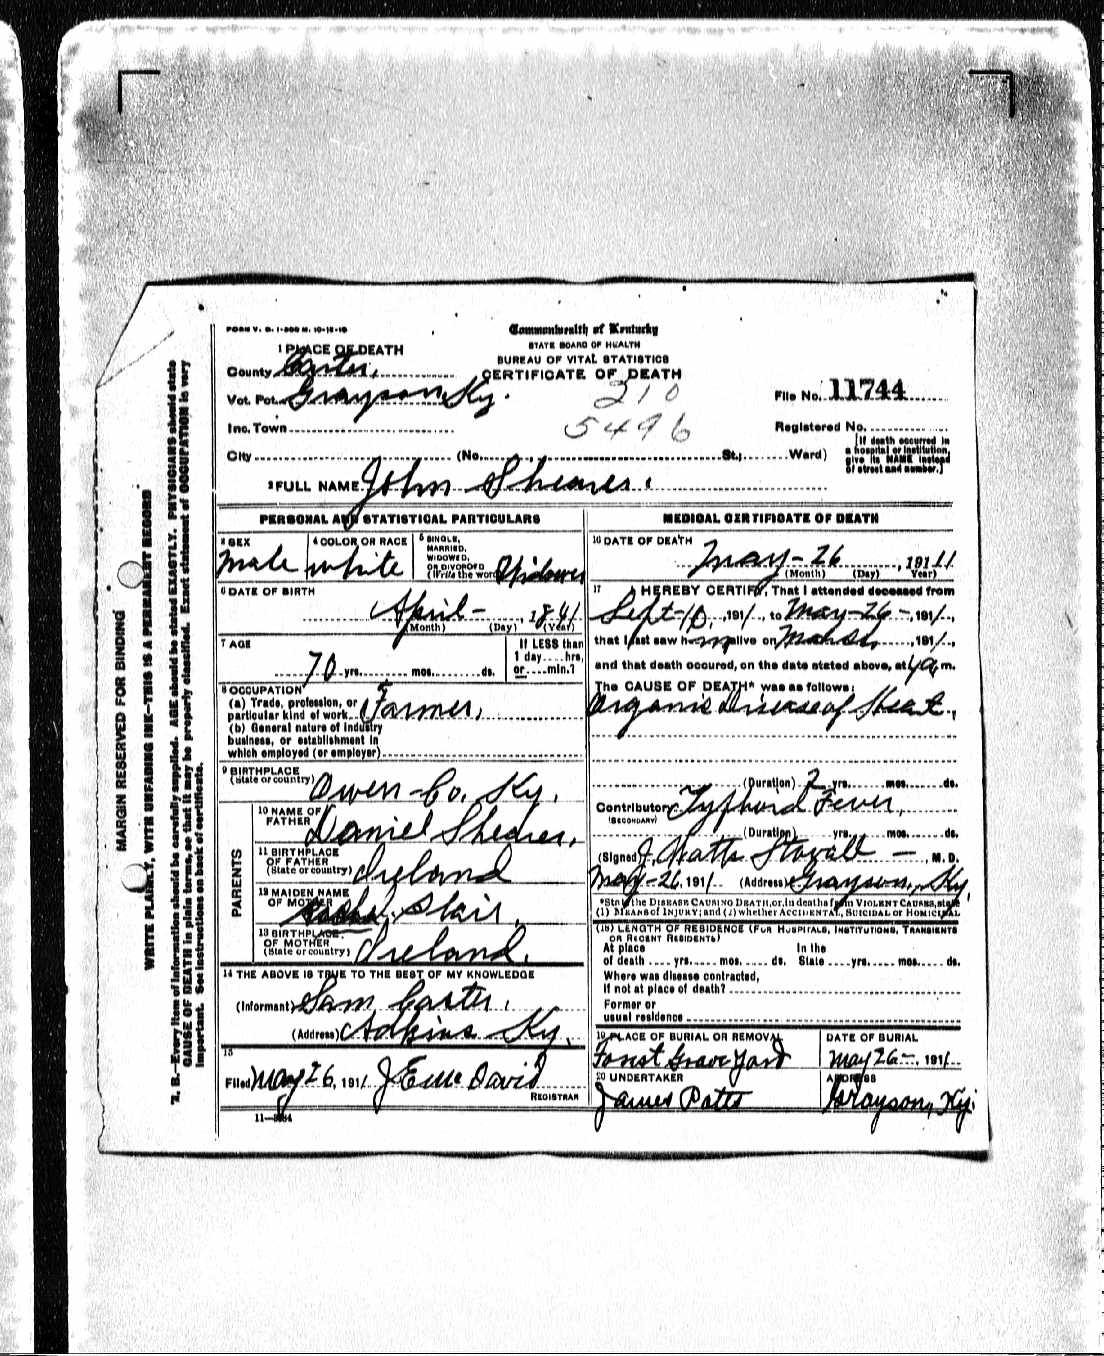 FORM V. S. 1-200 M. 10-18-10
Commonwealth of Kentucky
STATE BOARD OF HEALTH
BUREAU OF VITAL STATISTICS
CERTIFICATE OF DEATH
1 PLACE OF DEATH
County Carter,
Vot. Pct. Grayson, Ky.
Inc. Town
City (No. St.; Ward)
210
5496
File No. 11744
Registered No.
[If death occurred in
a hospital or institution,
give its NAME instead
of street and number.]
2 FULL NAME John Shearer.
PERSONAL AND STATISTICAL PARTICULARS
3 SEX
Male
4 COLOR OR RACE
White
5 SINGLE,
MARRIED,
WIDOWED,
OR DIVORCED
(Write the word) Widower
6 DATE OF BIRTH
April - , 1841
(Month) (Day) (Year)
7 AGE
70 yrs. mos. ds.
If LESS than
1 day hrs,
or min.?
8 OCCUPATION
(a) Trade, profession, or
particular kind of work. Farmer,
(b) General nature of industry
business, or establishment in
which employed (or employer)
9 BIRTHPLACE
(State or country) Owen Co. Ky.
PARENTS
10 NAME OF
FATHER Daniel Shearer,
11 BIRTHPLACE
OF FATHER
(State or country) Ireland
12 MAIDEN NAME
OF MOTHER Stair,
13 BIRTHPLACE
OF MOTHER
(State or country) Ireland.
14 THE ABOVE IS TRUE TO THE BEST OF MY KNOWLEDGE
(Informant) Sam Carter.
(Address) Adkins Ky.
15
Filed May 26, 1911 J E McDavid
REGISTRAR
11-
MEDICAL CERTIFICATE OF DEATH
16 DATE OF DEATH
May - 26 , 1911
(Month) (Day) (Year)
17 I HEREBY CERTIFY, That I attended deceased from
Sept-10, 191 , to May-26-, 1911,
that I last saw him alive on March, 1911,
and that death occured, on the date stated above, at 4 a m.
The CAUSE OF DEATH* was as follows:
Organic Disease of Heart,
(Duration) 2 yrs. mos. ds.
Contributory Typhoid Fever,
(SECONDARY)
(Duration) yrs. mos. ds.
(Signed) J. Watts Stovall - , M. D.
May-26, 1911 (Address) Grayson, Ky.
*State the DISEASE CAUSING DEATH, or, in deaths from VIOLENT CAUSES, state
(1) MEANS of INJURY; and (2) whether ACCIDENTAL, SUICIDAL OR HOMICIDAL
(18) LENGTH OF RESIDENCE (FOR HOSPITALS, INSTITUTIONS, TRANSIENTS
OR RECENT RESIDENTS)
At place In the
of death yrs. mos. ds. State yrs. mos. ds.
Where was disease contracted,
If not at place of death?
Former or
usual residence
19 PLACE OF BURIAL OR REMOVAL
Forest Grave Yard
DATE OF BURIAL
May 26-, 1911
20 UNDERTAKER
James Potts
ADDRESS
Grayson, Ky.
MARGIN RESERVED FOR BINDING
WRITE PLAINLY, WITH UNFADING INK—THIS IS A PERMANENT RECORD
N. B.—Every item of information should be carefully supplied. AGE should be stated EXACTLY. PHYSICIANS should state
CAUSE OF DEATH in plain terms, so that it may be properly classified. Exact statement of OCCUPATION is very
important. See instructions on back of certificate.